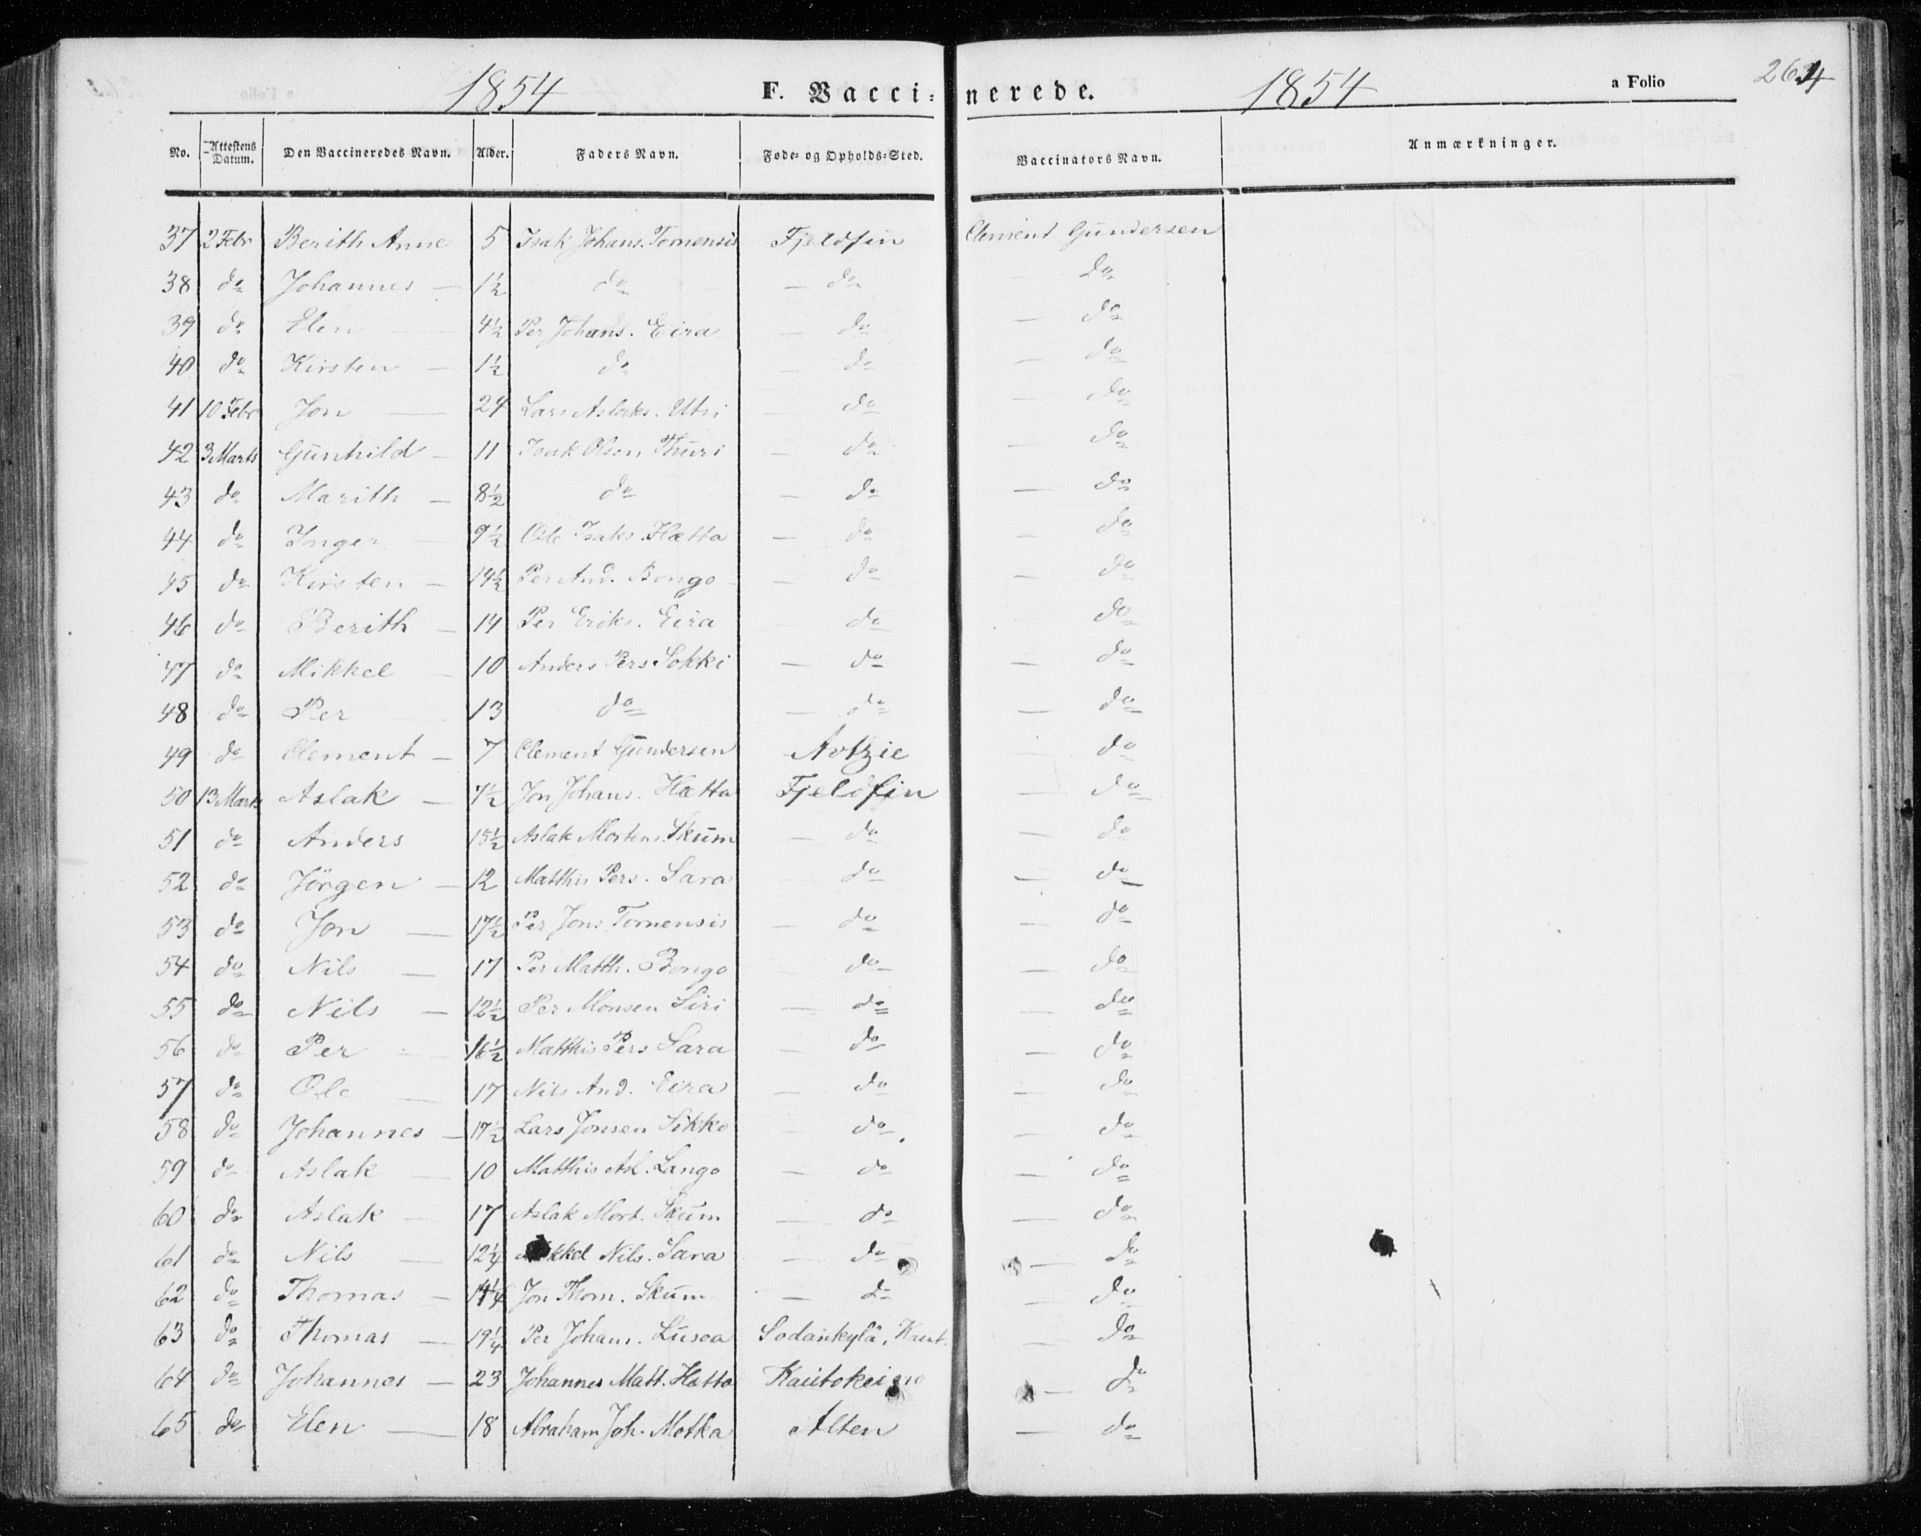 1854 F. Vaccinerede. 1854 a Folio 264
No. Attestens Datum. Den Vaccineredes Navn. Alder. Faders Navn. Føde- og Opholds-Sted. Vaccinators Navn. Anmærkninger.
37 2 Febr Berith Anne 5 Isak Johans. Tornensis Fjeldfin Clement Gundersen
38 do Johannes — 1½ do — do — do
39 do Elen — 4½ Per Johans. Eira — do — do
40 do Kirsten — 1½ do — do — do
41 10 Febr Jon — 24 Lars Aslaks. Utsi — do — do
42 3 Marts Gunhild — 11 Isak Olsen Thuri — do — do
43 do Marith — 8½ do — do — do
44 do Inger — 9½ Ole Isaks. Hætta — do — do
45 do Kirsten — 14½ Per And. Bongo — do — do
46 do Berith — 14 Per Eriks. Eira — do — do
47 do Mikkel — 10 Anders Pers Sokki — do — do
48 do Per — 13 do — do — do
49 do Clement — 7 Clement Gundersen Avtzie — do
50 13 Marts Aslak — 7½ Jon Johans. Hætta Fjeldfin — do
51 do Anders 15½ Aslak Mortens. Skum — do — do
52 do Jörgen — 12 Matthis Pers. Sara — do — do
53 do Jon — 17½ Per Jons. Tornensis — do — do
54 do Nils — 17 Per Matth. Bongo — do — do
55 do Nils — 12½ Per Monsen Siri — do — do
56 do Per — 16½ Matthis Pers Sara — do — do
57 do Ole — 17 Nils And. Eira — do — do
58 do Johannes — 17½ Lars Jonsen Sikko — do — do
59 do Aslak — 10 Matthis Lango — do — do
60 do Aslak — 17 Aslak Mort. Skum — do — do
61 do Nils — 12¼ Mikkel Nils. Sara — do — do
62 do Thomas — 14¼ Jon Thom. Skum — do — do
63 do Thomas — 19¼ Per Johans. Lusoa Sodankylä, — do
64 do Johannes — 23 Johannes Matt. Hatta Kautokeino — do
65 do Elen — 18 Abraham Joh. Motka Alten — do